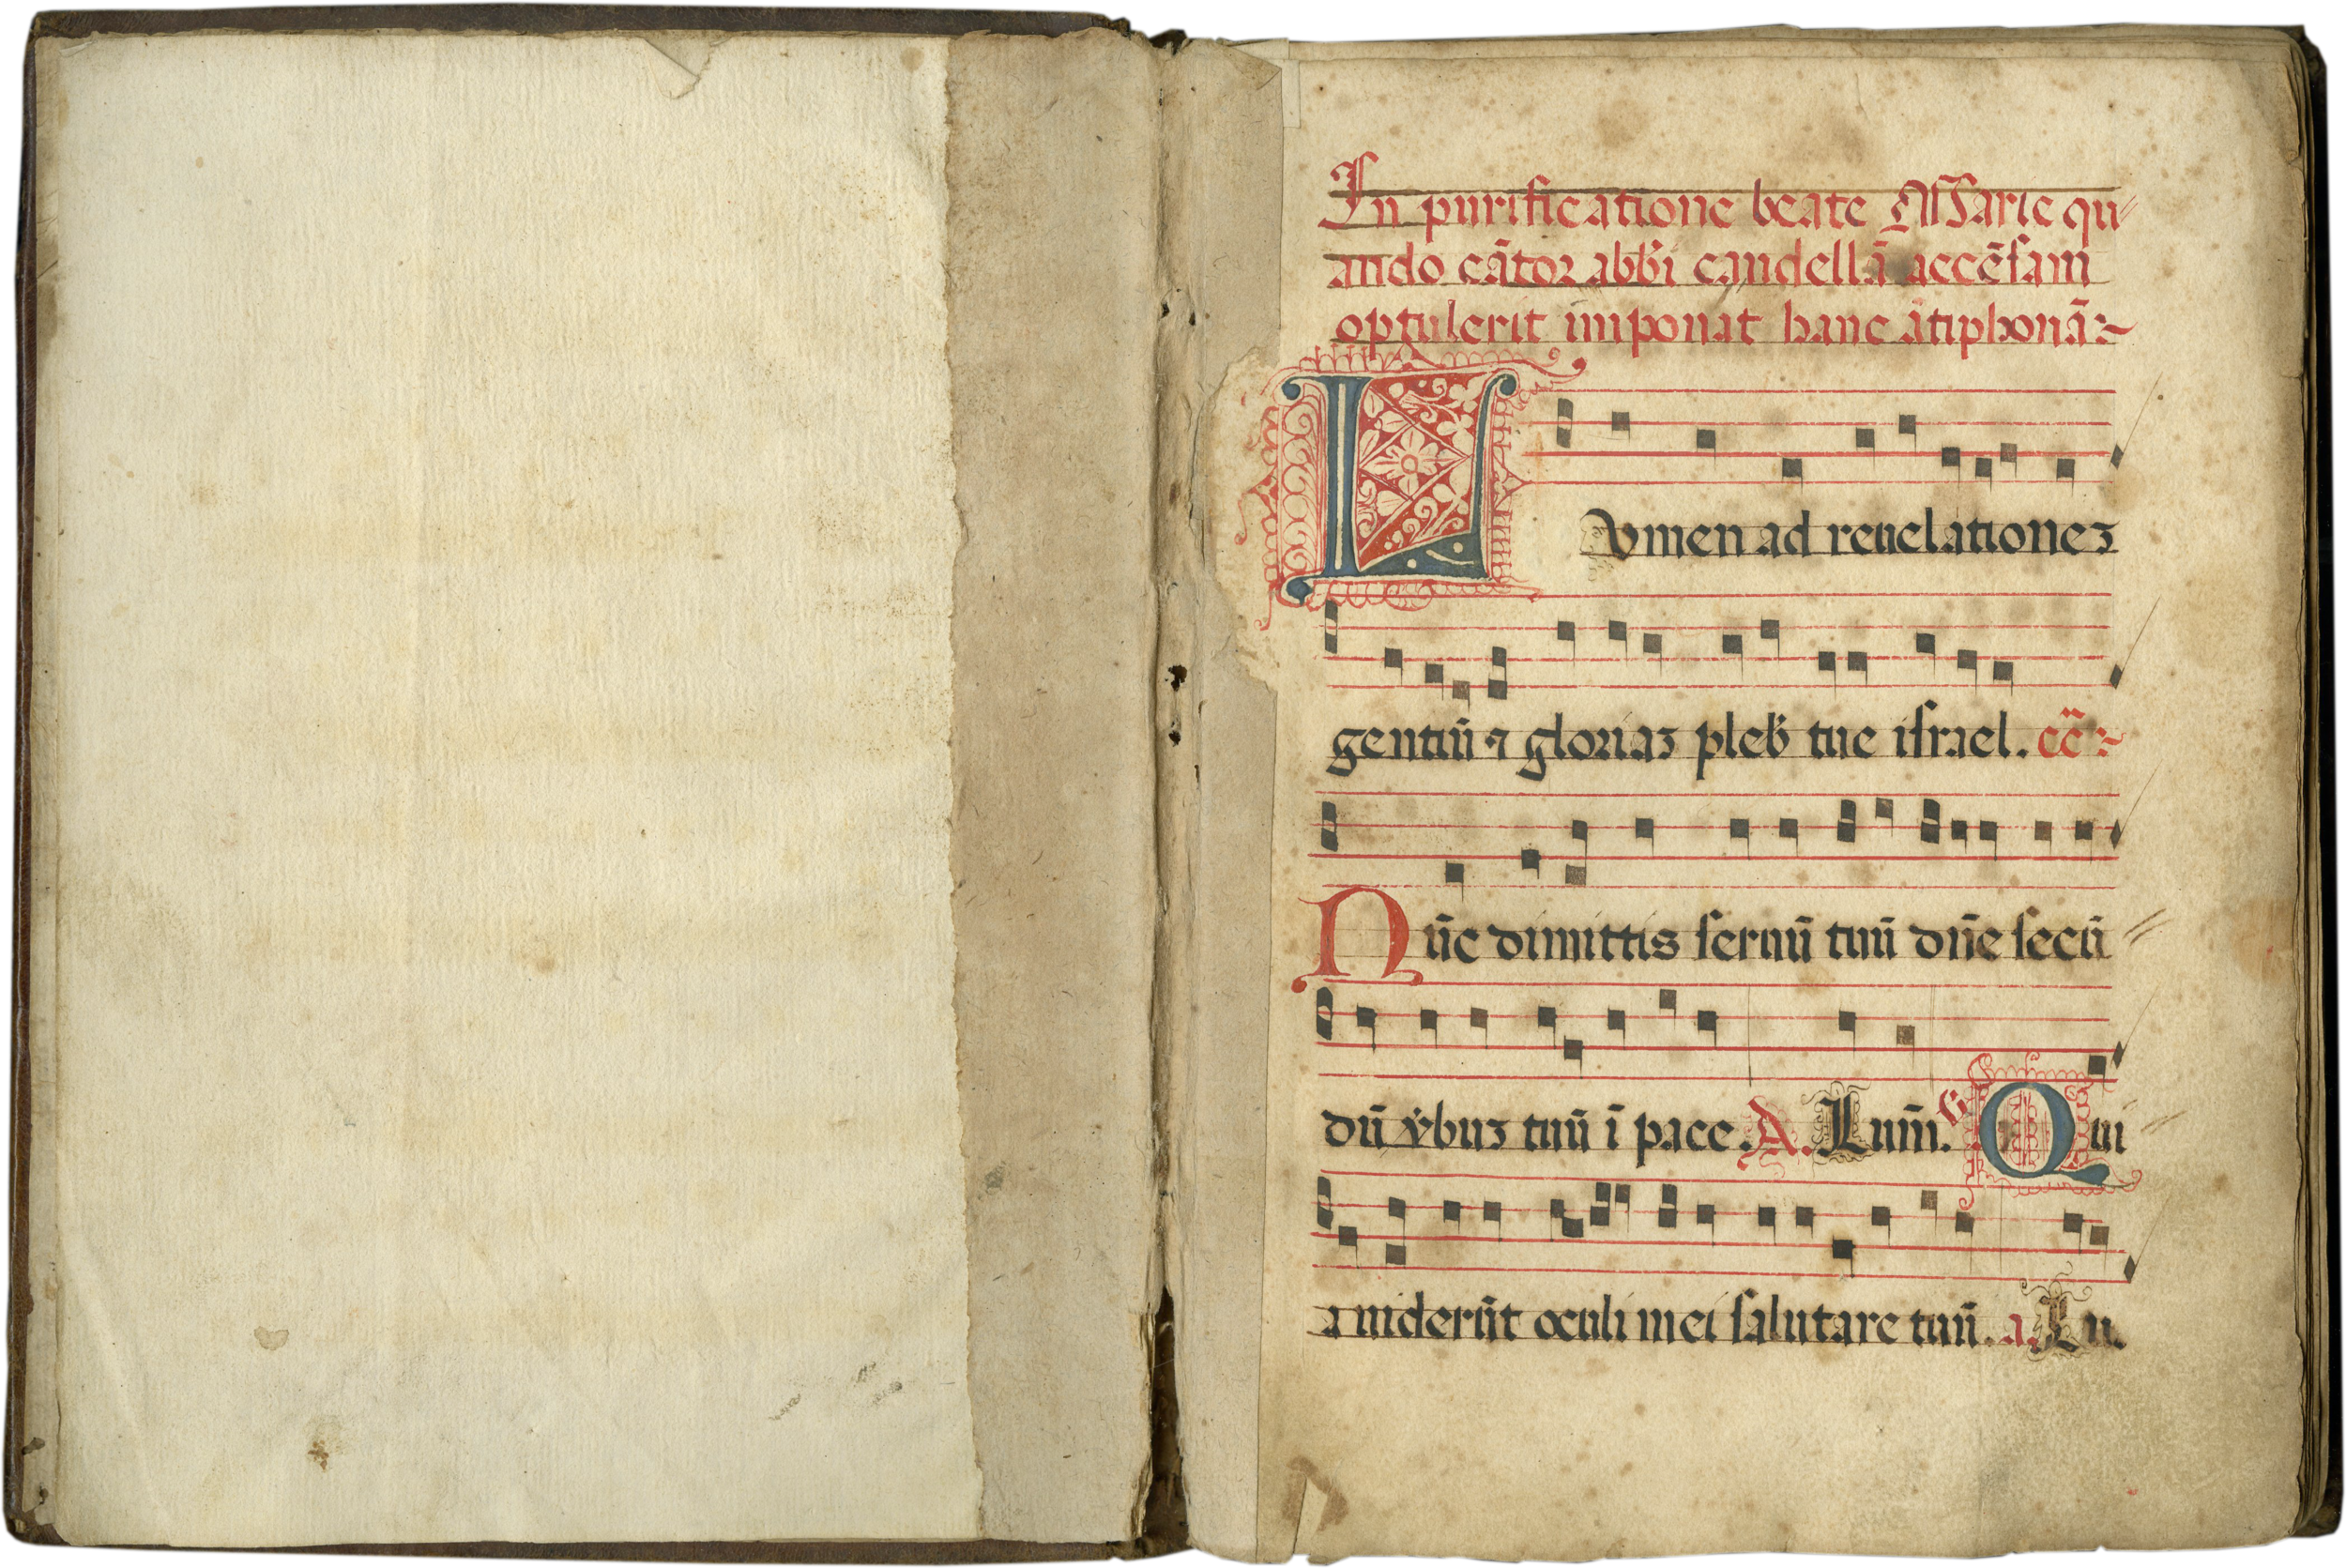 In purificatione beate Marie qu⸗
ando cātor abb̄i candellā accēsam
optulerit imponat hanc ātiphonā:~
LVmen ad reuelationeʒ
gentiū ⁊ gloriaʒ pleb̕ tue israel. c̄c̄:~
Nūc dimittis seruū tuū dn̄e secū⸗
dū v̕buʒ tuū ī pace. A. Lum̄. V Qui⸗
a uiderūt oculi mei salutare tuū. a. Lu.